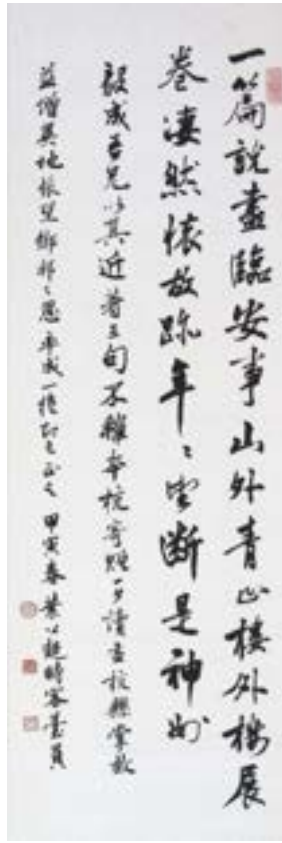 一篇說盡臨安事山外青山樓外樓展
卷淒然懷故跡年々望斷是神州
毅成吾兄以其近著三句不離本杭寄贈一夕讀盡杭縣掌故
益增異地悵望鄉邦之思率成一絕即乞正之 甲寅春葉公超時客臺員